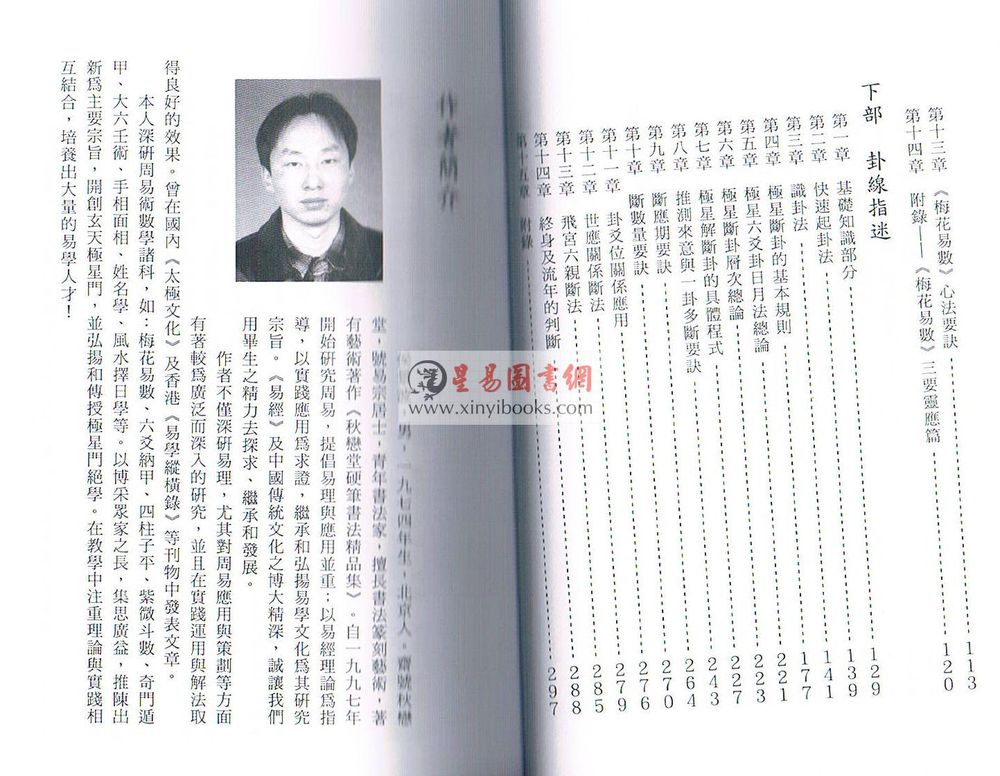 第十三章 《梅花易數》心法要訣 113
第十四章 附錄——《梅花易數》三要靈應篇 120
下部 卦線指迷
第一章 基礎知識部分 129
第二章 快速起卦法 139
第三章 識卦法 141
第四章 極星斷卦的基本規則 177
第五章 極星六爻卦日月法總論 221
第六章 極星斷卦層次總論 223
第七章 極星解斷卦的具體程式 227
第八章 推測來意與一卦多斷要訣 243
第九章 斷應期要訣 264
第十章 斷數量要訣 270
第十一章 卦爻位關係應用 276
第十二章 世應關係斷法 279
第十三章 飛宮六親斷法 285
第十四章 終身及流年的判斷 288
第十五章 附錄 297
作者簡介
男，一九七四年生，北京人。齋號秋戀
堂，號易宗居士，青年書法家，擅長書法篆刻藝術，著
有藝術著作《秋戀堂硬筆書法精品集》。自一九九七年
開始研究周易，提倡易理與應用並重；以易經理論爲指
導，以實踐應用爲求證，繼承和弘揚易學文化爲其研究
宗旨。《易經》及中國傳統文化之博大精深，誠讓我們
用畢生之精力去探求、繼承和發展。
作者不僅深研易理，尤其對周易應用與策劃等方面
有著較爲廣泛而深入的研究，並且在實踐運用與解法取
得良好的效果。曾在國內《太極文化》及香港《易學縱橫錄》等刊物中發表文章。
本人深研周易術數學諸科，如：梅花易數、六爻納甲、四柱子平、紫微斗數、奇門遁
甲、大六壬術、手相面相、姓名學、風水擇日學等。以博采眾家之長，集思廣益，推陳出
新爲主要宗旨，開創玄天極星門，並弘揚和傳授極星門絕學。在教學中注重理論與實踐相
互結合，培養出大量的易學人才！
星易圖書網
www.xinyibooks.com